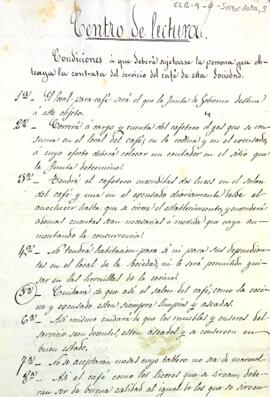 CLR-9-0-Sense data, 3
Centro de lectura.
Condiciones á que deberá sujetarse la persona que ob-
tenga la contrata del servicio del café de esta Sociedad.
1ª El local para café será el que la Junta de Gobierno destina
á este objeto.
2ª Correrá á cargo y cuenta del cafetero el gas que se con-
suma en el local del café, en la cocina y en el escusado,
á cuyo efecto deberá colocar un contador en el sitio que
la Junta determine.
3ª Tendrá el cafetero encendidas dos luces en el salon
del café y una en el escusado diariamente desde el
anochecer hasta que se cierre el establecimiento, y encenderá
ademas cuantas sean necesarias á medida que vaya au-
mentando la concurrencia.
4ª No tendrá habitacion para sí ni para sus dependien-
tes en el local de la Sociedad, ni le será permitido gui-
sar en las hornillas de la cocina.
5ª Cuidará de que asi el salon del café, como la coci-
na y escusado esten siempre limpios y aseados.
6ª Asi mismo cuidará de que los muebles y enseres del
servicio sean decentes, esten aseados y se conserven en
buen estado.
7ª No se aceptarán mesas cuyo tablero no sea de marmol.
8ª Asi el café como los licores que se sirvan, debe-
ran ser de buena calidad al igual de los que se sirven